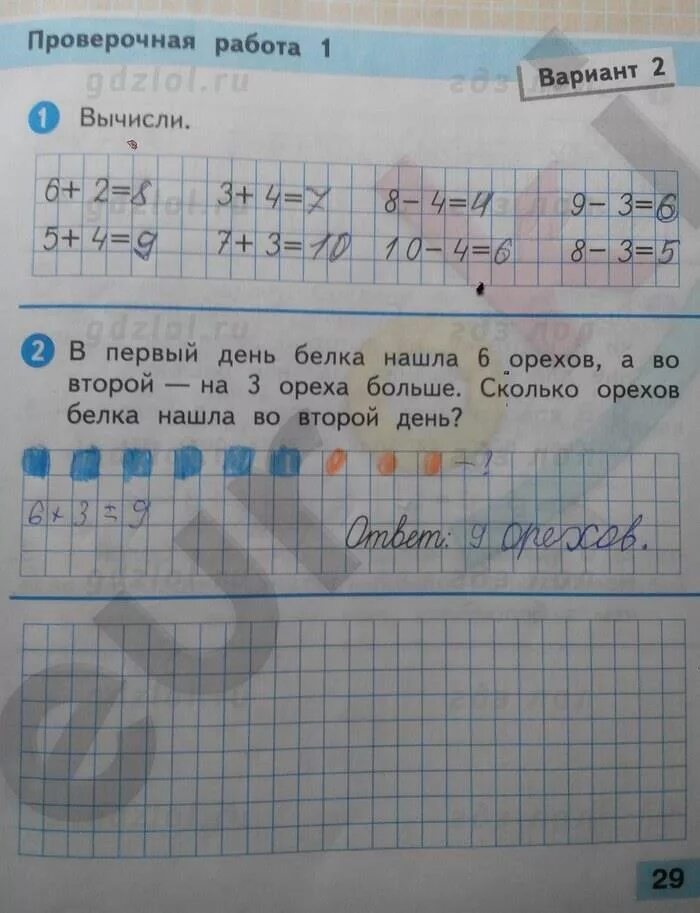 Проверочная работа 1
gdzlol.ru
Вариант 2
1 Вычисли.
6+ 2=8 3+ 4=7 8- 4=4 9- 3=6
5+ 4=9 7+ 3=10 10- 4=6 8- 3=5
gdzlol.ru
2 В первый день белка нашла 6 орехов, а во
второй — на 3 ореха больше. Сколько орехов
белка нашла во второй день?
- ?
6 + 3 = 9
Ответ: 9 орехов.
29